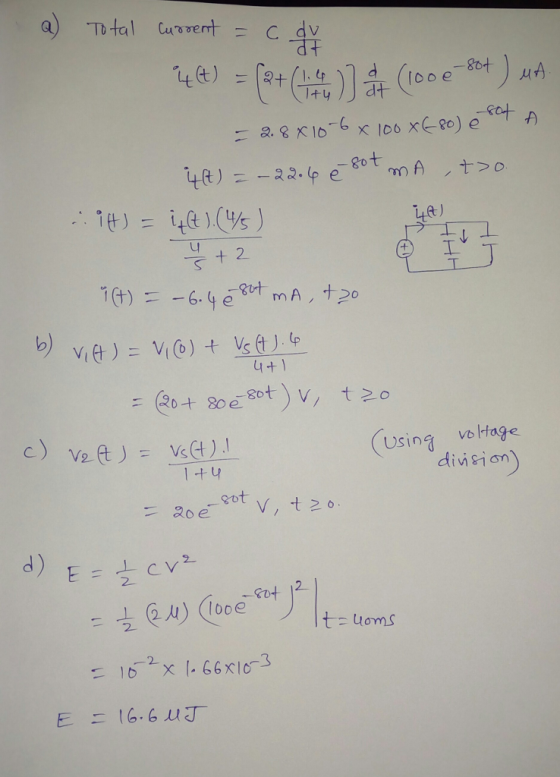 a) Total current = C dv/dt
i_t(t) = [2+(1.4/1+4)] d/dt (100e^-80t) μA
= 2.8 × 10^-6 × 100 × (-80) e^-80t A
i_t(t) = -22.4 e^-80t mA, t>0
∴ i(t) = i_t(t).(4/5) / 4/5 + 2
i_t(t)
i(t) = -6.4 e^-80t mA, t≥0
b) V₁(t) = V₁(0) + Vs(t).4 / 4+1
= (20+ 80e^-80t) V, t≥0
c) V₂(t) = Vs(t).1 / 1+4
(Using voltage
division)
= 20e^-80t V, t≥0.
d) E = 1/2 CV²
= 1/2 (2μ) (100e^-80t)² | t=40ms
= 10^-2 × 1.66×10^-3
E = 16.6 μJ